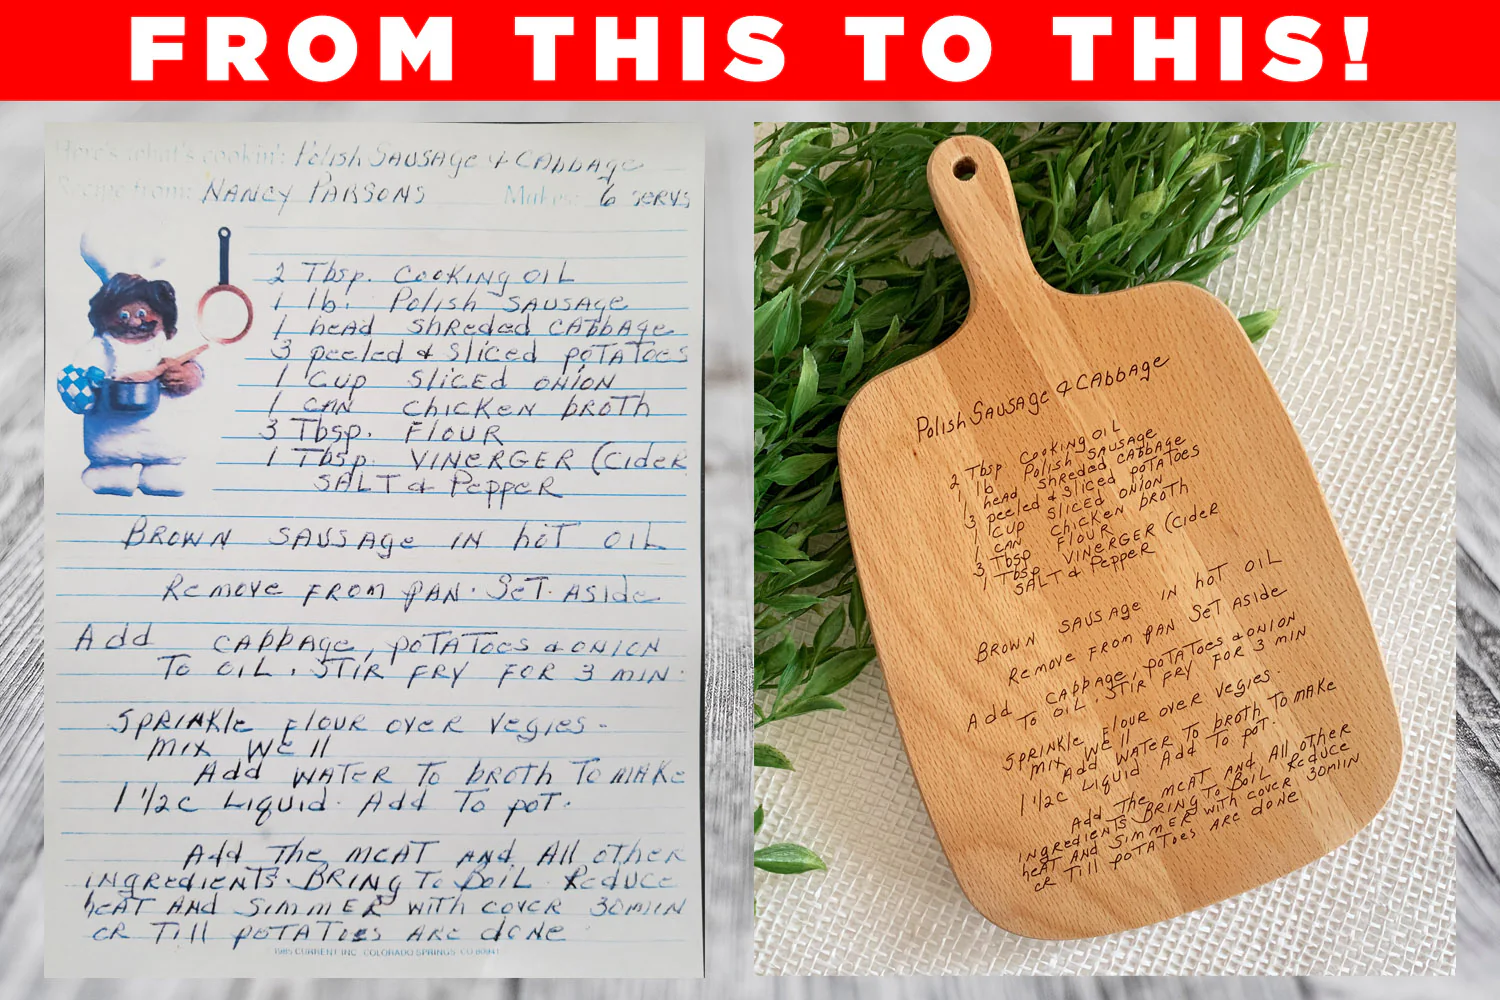 FROM THIS TO THIS!
Here's what's cookin': Polish SAUSAge & CAbbAge
Recipe from: NANCY PARSONS Makes: 6 SERVS
2 Tbsp. Cooking OIL
1 lb. Polish SAUSAge
1 head Shreded CAbbAge
3 peeled & Sliced poTATOes
1 Cup SLICED ONION
1 CAN ChicKen bROTh
3 Tbsp. FlOUR
1 Tbsp. VINERGER (CideR
SALT & PeppeR
BROWN SAUSAge IN hOT OIL
Remove FROM PAN. SeT. ASide
Add CAbbAge, poTATOes & ONION
TO OIL. STIR FRY FOR 3 MIN.
SpRINKle FlOUR OVeR Vegies.
MIX Well
Add WATeR TO bROTh TO MAKe
1 1/2c LIquid. Add To poT.
Add The MeAT ANd All OTheR
INgRedieNTS. BRINg To BOIL. Reduce
heAT ANd SIMMER WITh COVeR 30MIIN
OR TIll poTATOes ARe dONe
1985 CURRENT INC COLORADO SPRINGS, CO 80941
Polish SAUSAge & CAbbAge
2 Tbsp Cooking OIL
1 lb Polish SAUSAge
1 head Shreded CAbbAge
3 peeled & Sliced poTATOes
1 Cup SLICED ONION
1 CAN ChicKen bROTh
3 Tbsp FlOUR
1 Tbsp VINERGER (CideR
SALT & PeppeR
BROWN SAUSAge IN hOT OIL
Remove FROM PAN SeT ASide
Add CAbbAge, poTATOes & ONION
TO OIL. STIR FRY FOR 3 MIN
SpRINKle FlOUR OVeR Vegies.
MIX Well
Add WATeR TO bROTh TO MAKe
1 1/2c LIquid Add To poT.
Add The MeAT ANd All OTheR
INgRedieNTS BRINg To BOIL Reduce
heAT ANd SIMMER WITh COVeR 30MIIN
OR TIll poTATOes ARe dONe